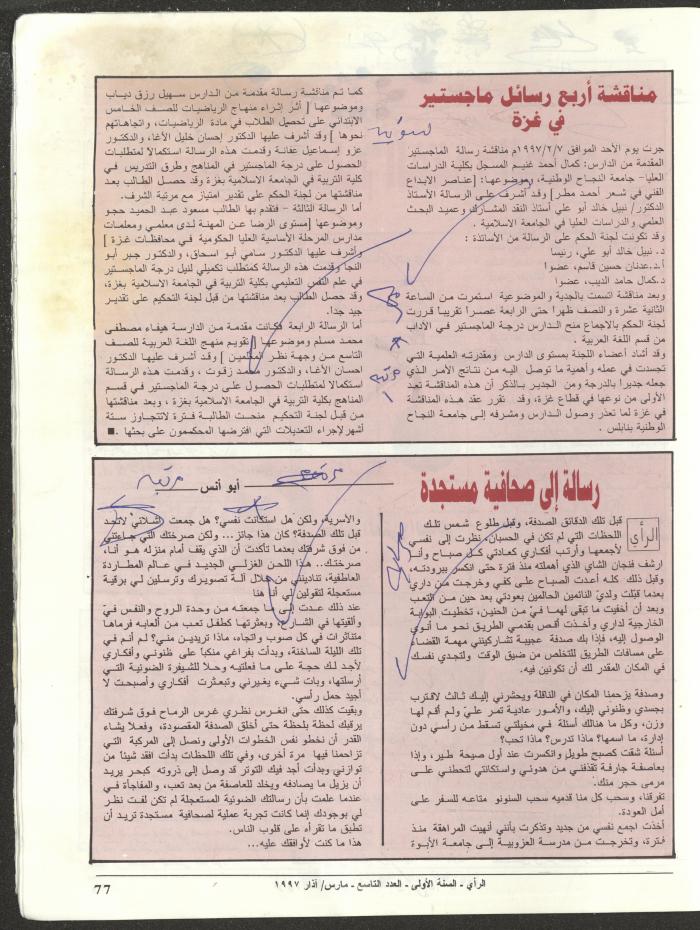 مناقشة أربع رسائل ماجستير
في غزة
جرت يوم الأحد الموافق ١٩٩٧/٢/٧م مناقشة رسالة الماجستير
المقدمة من الدارس: كمال أحمد غنيم المسجل بكلية الدراسات
العليا- جامعة النجاح الوطنية، وموضوعها: [عناصر الابداع
الفني في شعر أحمد مطر] وقد أشرف على الرسالة الأستاذ
الدكتور/ نبيل خالد أبو علي أستاذ النقد المشارك وعميد البحث
العلمي والدراسات العليا في الجامعة الاسلامية .
وقد تكونت لجنة الحكم على الرسالة من الأساتذة :
د. نبيل خالد أبو علي، رئيسا
أ.د.عدنان حسين قاسم، عضوا
د.كمال حامد الديب، عضوا
وبعد مناقشة اتسمت بالجدية والموضوعية استمرت من الساعة
الثانية عشرة والنصف ظهرا حتى الرابعة عصرا تقريبا قررت
لجنة الحكم بالاجماع منح الدارس درجة الماجستير في الآداب
من قسم اللغة العربية .
وقد أشاد أعضاء اللجنة بمستوى الدارس ومقدرته العلمية التي
تجسدت في عمله وأهمية ما توصل اليه من نتائج الأمر الذي
جعله جديرا بالدرجة ومن الجدير بالذكر أن هذه المناقشة تعد
الأولى من نوعها في قطاع غزة، وقد تقرر عقد هذه المناقشة
في غزة لما تعذر وصول الدارس ومشرفه إلى جامعة النجاح
الوطنية بنابلس .
كما تم مناقشة رسالة مقدمة من الدارس سهيل رزق دياب
وموضوعها [ أثر إثراء منهاج الرياضيات للصف الخامس
الابتدائي على تحصيل الطلاب في مادة الرياضيات، واتجاهاتهم
نحوها ] وقد أشرف عليها الدكتور إحسان خليل الأغا، والدكتور
عزو إسماعيل عفانة وقدمت هذه الرسالة استكمالا لمتطلبات
الحصول على درجة الماجستير في المناهج وطرق التدريس في
كلية التربية في الجامعة الاسلامية بغزة وقد حصل الطالب بعد
مناقشتها من لجنة الحكم على تقدير امتياز مع مرتبة الشرف.
أما الرسالة الثالثة - فتقدم بها الطالب مسعود عبد الحميد حجو
وموضوعها [مستوى الرضا عن المهنة لدى معلمي ومعلمات
مدارس المرحلة الأساسية العليا الحكومية في محافظات غزة ]
وأشرف عليها الدكتور سامي أبو اسحاق، والدكتور جبر أبو
النجا وقدمت هذه الرسالة كمتطلب تكميلي لنيل درجة الماجستير
في علم النفس التعليمي بكلية التربية في الجامعة الاسلامية بغزة،
وقد حصل الطالب بعد مناقشتها من قبل لجنة التحكيم على تقدير
جيد جدا.
أما الرسالة الرابعة فكانت مقدمة من الدارسة هيفاء مصطفى
محمد مسلم وموضوعها [ تقويم منهج اللغة العربية للصف
التاسع من وجهة نظر المعلمين ] وقد أشرف عليها الدكتور
احسان الأغا، والدكتور محمد زقوت ، وقدمت هذه الرسالة
استكمالا لمتطلبات الحصول على درجة الماجستير في قسم
المناهج بكلية التربية في الجامعة الاسلامية بغزة ، وبعد مناقشتها
من قبل لجنة التحكيم منحت الطالبة فترة لاتتجاوز ستة
أشهر لإجراء التعديلات التي افترضها المحكمون على بحثها .■
رسالة إلى صحافية مستجدة
أبو أنس
مرتبه
الرأي
قبل تلك الدقائق الصدفة، وقبل طلوع شمس تلك
اللحظات التي لم تكن في الحسبان نظرت إلى نفسي
لأجمعها وأرتب أفكاري كعادتي كل صباح وأنا
ارشف فنجان الشاي الذي أهملته منذ فترة حتى انكسر ببرودته،
وقبل ذلك كله أعدت الصباح على كفي وخرجت من داري
بعدما قبّلت ولديّ النائمين الحالمين بعودتي بعد حين من التعب
وبعد أن أخفيت ما تبقى لهما فيّ من الحنين، تخطيت البوابة
الخارجية لداري وأخذت أقص بقدمي الطريق نحو ما أنوي
الوصول إليه، فإذا بك صدفة عجيبة تشاركينني مهمة القضاء
على مسافات الطريق للتخلص من ضيق الوقت ولتجدي نفسك
في المكان المقدر لك أن تكونين فيه.
وصدفة يزحمنا المكان في الناقلة ويحشرني إليك ثالث لاقترب
بجسدي وظنوني إليك، والأمور عادية تمر علي ولم أقم لها
وزن، وكل ما هنالك أسئلة في مخيلتي تسقط من رأسي دون
إدارة، ما اسمها؟ ماذا تدرس؟ ماذا تحب؟
أسئلة شقت كصبح طويل وانكسرت عند أول صيحة طير، وإذا
بعاصفة جارفة تقذفني من هدوئي واستكانتي لتحطني على
مرمى حجر منك.
تفرقنا، وسحب كل منا قدميه سحب السنونو متاعه للسفر على
أمل العودة.
أخذت اجمع نفسي من جديد وتذكرت بأنني أنهيت المراهقة منذ
فترة، وتخرجت من مدرسة العزوبية إلى جامعة الأبوة
والأسرية، ولكن هل استكانت نفسي؟ هل جمعت أشلائي لاتجد
قبل تلك الصدفة؟ كان هذا جائز... ولكن صرختك التي جاءتني
من فوق شرفتك بعدما تأكدت أن الذي يقف أمام منزله هو أنا،
صرختك.. هذا اللحن الغزلي الجديد في عالم المطاردة
العاطفية، تناديني من خلال آلة تصويرك وترسلين لي برقية
مستعجلة لتقولين لي أنا هنا
عند ذلك عدت إلى ما جمعته من وحدة الروح والنفس فيّ
وألقيتها في الشارع، وبعثرتها كطفل تعب من ألعابه فرماها
متناثرات في كل صوب واتجاه، ماذا تريدين مني؟ لم أنم في
تلك الليلة الساخنة، وبدأت بفراغي منكباً على ظنوني وأفكاري
لأجد لك حجة على ما فعلتيه وحلا للشيفرة الضوئية التي
أرسلتها، وبات شيء يغيرني وتبعثرت أفكاري وأصبحت لا
أجيد حمل رأسي.
وبقيت كذلك حتى انغرس نظري غرس الرماح فوق شرفتك
يرقبك لحظة بلحظة حتى أخلق الصدفة المقصودة، وفعلا يشاء
القدر أن نخطو نفس الخطوات الأولى ونصل إلى المركبة التي
تزاحمنا فيها مرة أخرى، وفي تلك اللحظات بدأت افقد شيئاً من
توازني وبدأت أجد فيك التوتر قد وصل إلى ذروته كبحر يريد
أن يزيل ما يصادفه ويخلد للعاصفة من بعد تعب، والمفاجأة في
عندما علمت بأن رسالتك الضوئية المستعجلة لم تكن لفت نظر
لي بوجودك إنما كانت تجربة عملية لصحافية مستجدة تريد أن
تطبق ما تقرأه على قلوب الناس.
هذا ما كنت لأوافقك عليه...
الرأي ـ السنة الأولى ـ العدد التاسع ـ مارس/ آذار ١٩٩٧
77